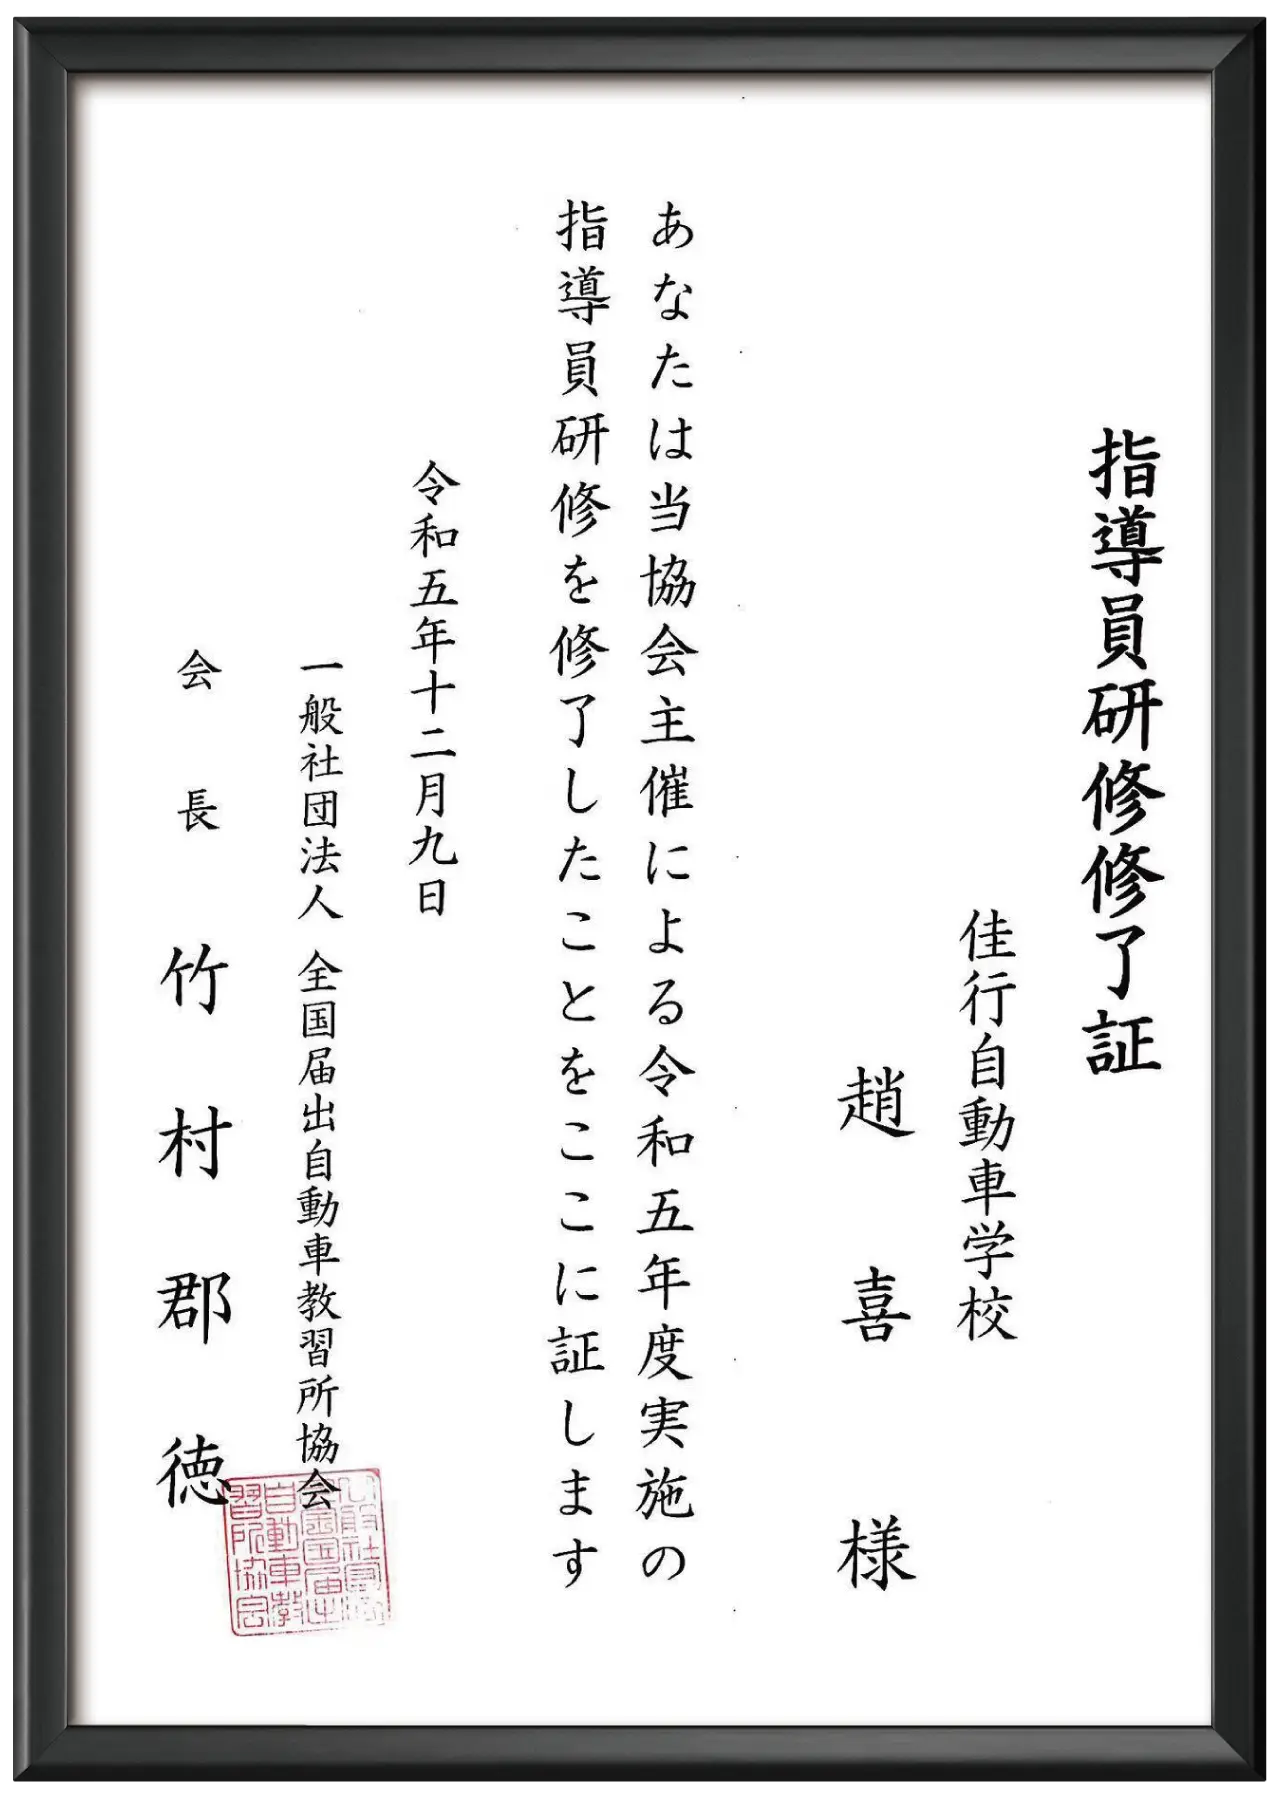 指導員研修修了証
佳行自動車学校
趙喜様
あなたは当協会主催による令和五年度実施の
指導員研修を修了したことをここに証します
令和五年十二月九日
一般社団法人 全国届出自動車教習所協会
会長 竹村郡徳
一般社団法人
全国届出
自動車教
習所協会